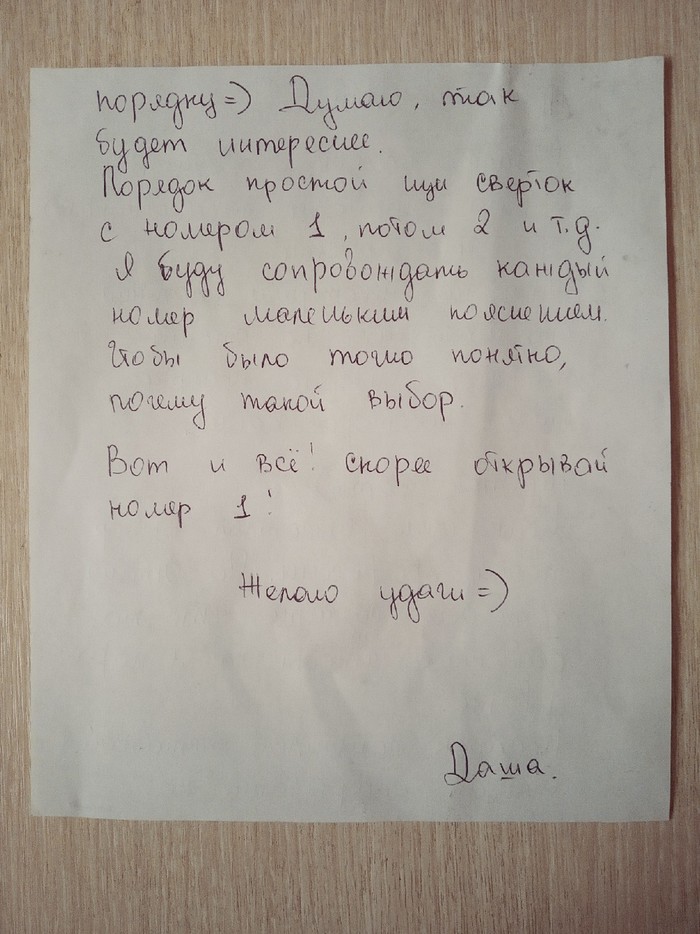 порядку=) Думаю, так
будет интереснее.
Порядок простой ищи сверток
с номером 1, потом 2 и т.д.
Я буду сопровождать каждый
номер маленьким пояснением.
Чтобы было точно понятно,
почему такой выбор.
Вот и всё! скорее открывай
номер 1!
Желаю удачи=)
Даша.